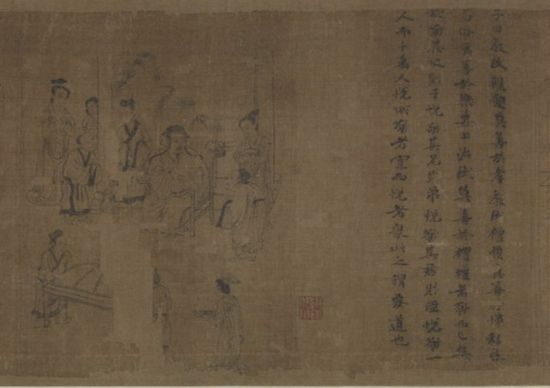 子曰教民親愛莫善於孝教民禮順莫善於悌移風
易俗莫善於樂安上治民莫善於禮禮者敬而已矣
故敬其父則子悅敬其兄則弟悅敬其君則臣悅敬一
人而千萬人悅所敬者寡而悅者眾此之謂要道也